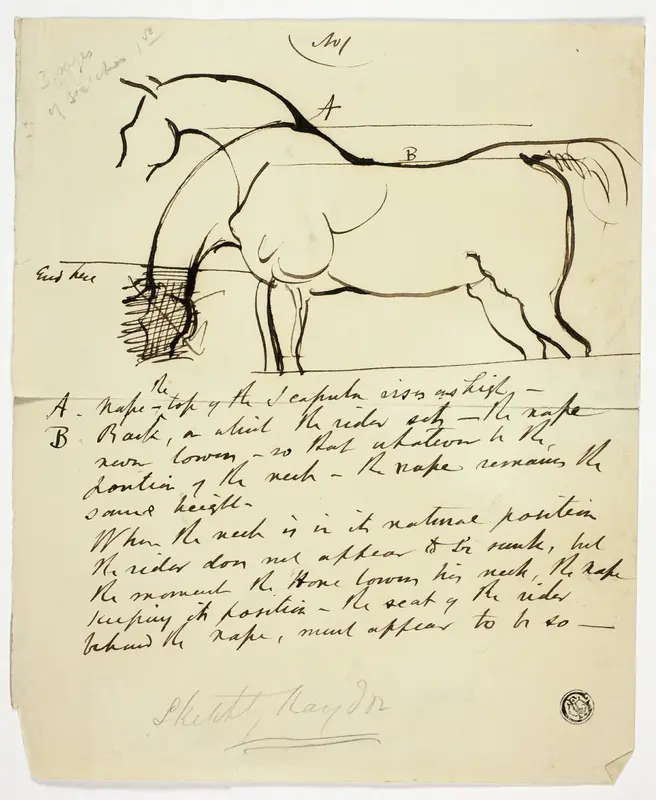 3 pages
of sketches 1st
No 1
A
B
End here
the
A. nape - top of the Scapula rises as high -
B. Back, on which the rider sits - the nape
never lowers - so that whatever be the
position of the neck - the nape remains the
same height.
When the neck is in its natural position
the rider does not appear to be sunk, but
the moment the Horse lowers his neck, the nape
keeping its position - the seat of the rider
behind the nape, must appear to be so -
Sketch by Haydon